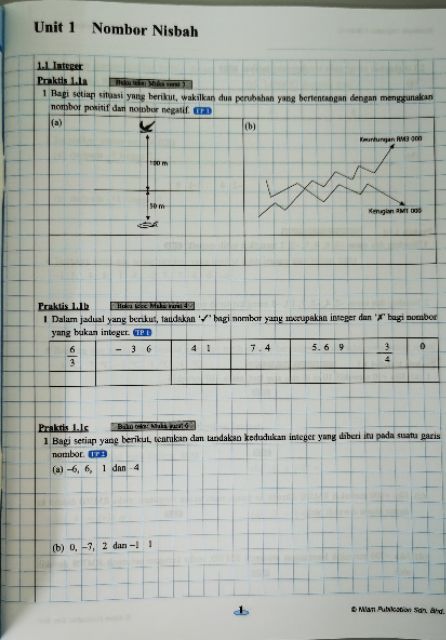 Unit 1 Nombor Nisbah
1.1 Integer
Praktis 1.1a Buku teks: Muka surat 3
1 Bagi setiap situasi yang berikut, wakilkan dua perubahan yang bertentangan dengan menggunakan
nombor positif dan nombor negatif. TP 1
(a) (b)
Keuntungan RM3 000
100 m
50 m
Kerugian RM1 000
Praktis 1.1b Buku teks: Muka surat 4
1 Dalam jadual yang berikut, tandakan '✓' bagi nombor yang merupakan integer dan '✗' bagi nombor
yang bukan integer. TP 1
6/3 – 3 6 4 1 7 . 4 5 . 6 9 3/4 0
Praktis 1.1c Buku teks: Muka surat 6
1 Bagi setiap yang berikut, tentukan dan tandakan kedudukan integer yang diberi itu pada suatu garis
nombor. TP 2
(a) –6, 6, 1 dan 4
(b) 0, –7, 2 dan –1 1
1
© Nilam Publication Sdn. Bhd.